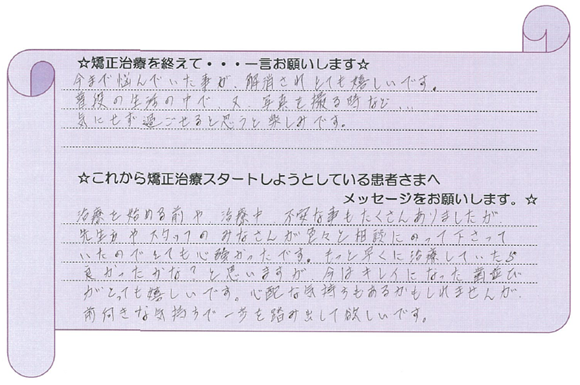 ☆矯正治療を終えて・・・一言お願いします☆
今まで悩んでいた事が、解消されとても嬉しいです。
普段の生活の中で、又、写真を撮る時など…
気にせず過ごせると思うと楽しみです。
☆これから矯正治療スタートしようとしている患者さまへ
メッセージをお願いします。☆
治療を始める前や、治療中、不安な事もたくさんありましたが、
先生方やスタッフのみなさんが色々と相談にのって下さって
いたのでとても心強かったです。もっと早くに治療していたら
良かったかな?と思いますが、今はキレイになった歯並び
がとっても嬉しいです。心配な気持ちもあるかもしれませんが、
前向きな気持ちで一歩を踏み出して欲しいです。